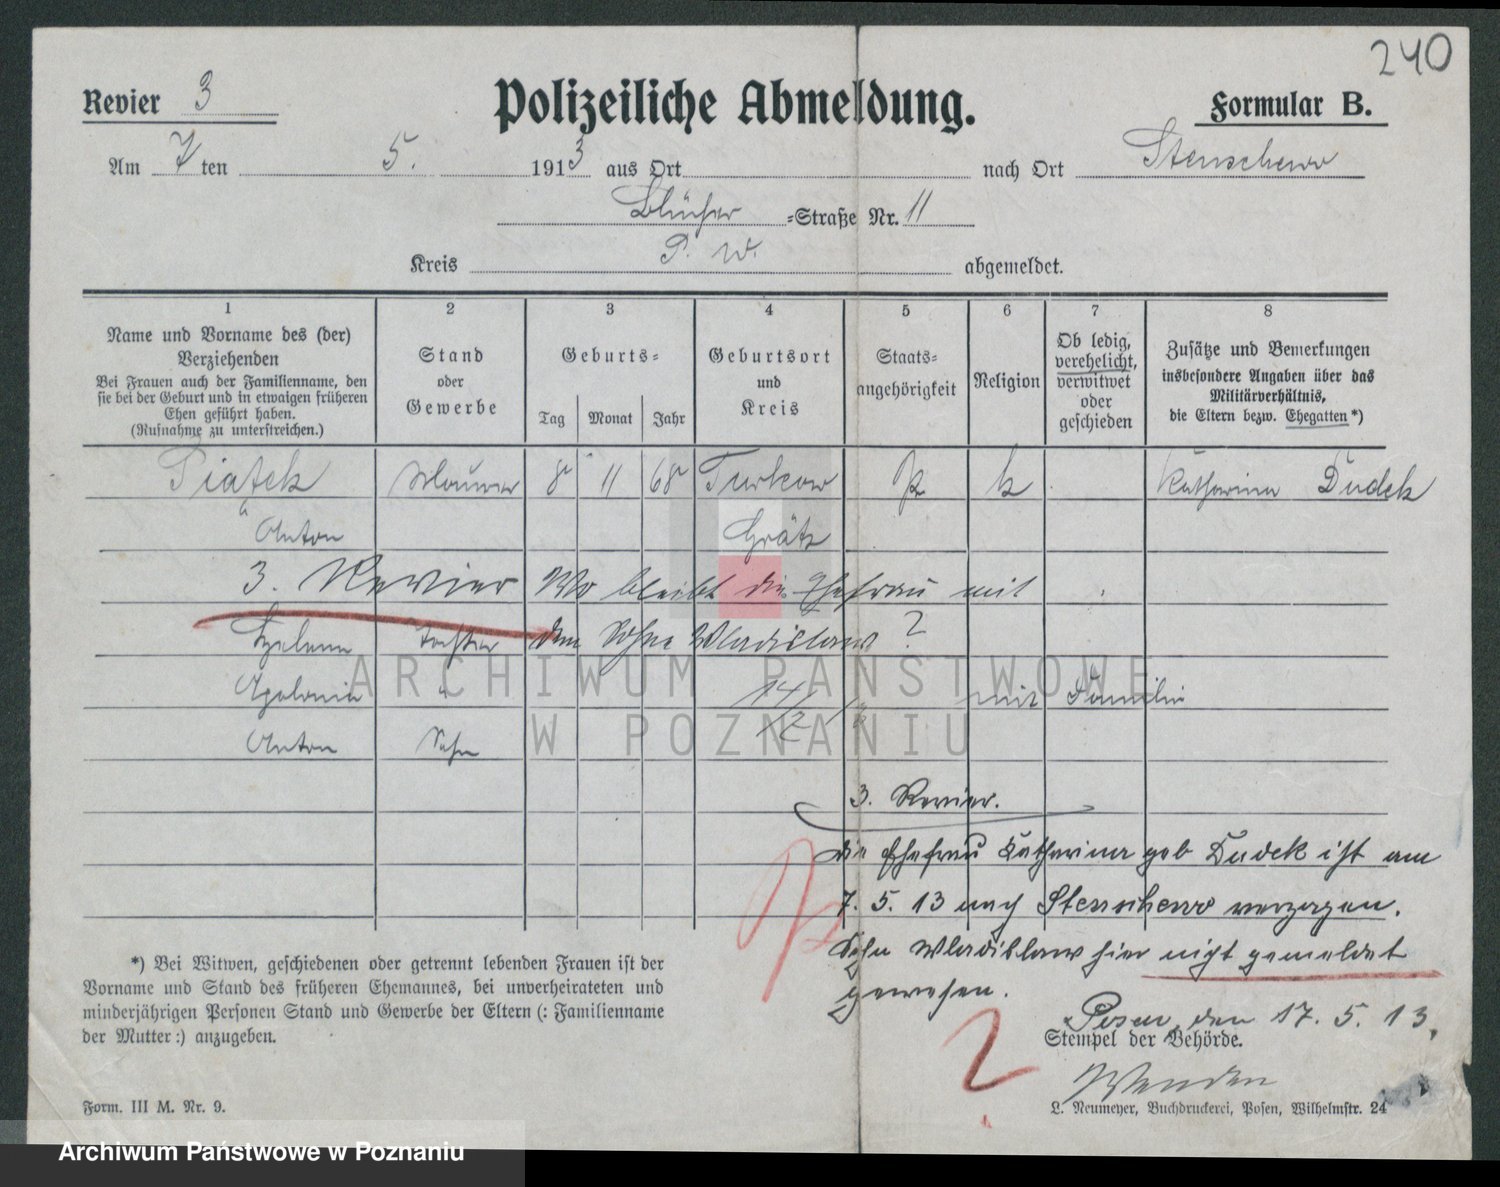 240
Revier 3
Polizeiliche Abmeldung.
Formular B.
Am 7 ten 5. 1913 aus Ort nach Ort Stenschewo
Blücher =Straße Nr. 11
Kreis P. W. abgemeldet.
1 2 3 4 5 6 7 8
Name und Vorname des (der) Verziehenden
Bei Frauen auch der Familienname, den
sie bei der Geburt und in etwaigen früheren
Ehen geführt haben.
(Rufnahme zu unterstreichen.)
Stand
oder
Gewerbe
Geburts=
Tag Monat Jahr
Geburtsort
und
Kreis
Staats=
angehörigkeit
Religion
Ob ledig,
verehelicht,
verwitwet
oder
geschieden
Zusätze und Bemerkungen
insbesondere Angaben über das
Militärverhältnis,
die Eltern bezw. Ehegatten *)
Piątek Maurer 8 11 68 Turkow k Katharina Dudek
Anton Grätz
3. Revier Wo bleibt die Ehefrau mit
dem Sohne Wladislaw ?
Helena Tochter
Apolonia " 14/2 mit Familie
Anton Sohn
3. Revier.
Die Ehefrau Katharina geb Dudek ist am
7. 5. 13 nach Stenschewo verzogen.
Sohn Wladislaw hier nicht gemeldet
gewesen.
Posen, den 17. 5. 13.
Stempel der Behörde.
*) Bei Witwen, geschiedenen oder getrennt lebenden Frauen ist der
Vorname und Stand des früheren Ehemannes, bei unverheirateten und
minderjährigen Personen Stand und Gewerbe der Eltern (: Familienname
der Mutter :) anzugeben.
Form. III M. Nr. 9.
L. Neumeyer, Buchdruckerei, Posen, Wilhelmstr. 24
ARCHIWUM PAŃSTWOWE
W POZNANIU
Archiwum Państwowe w Poznaniu